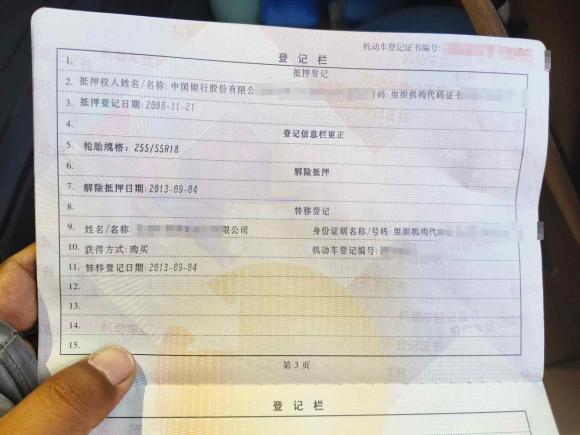 机动车登记证书编号:
登记栏
1. 抵押登记
2. 抵押权人姓名/名称: 中国银行股份有限公 号码: 组织机构代码证卡
3. 抵押登记日期: 2008-11-21
4. 登记信息栏更正
5. 轮胎规格: 255/55R18
6. 解除抵押
7. 解除抵押日期: 2013-09-04
8. 转移登记
9. 姓名/名称 有限公司 身份证明名称/号码: 组织机构代
10. 获得方式: 购买 机动车登记编号:
11. 转移登记日期: 2013-09-04
12.
13.
14.
15.
第 3 页
登记栏